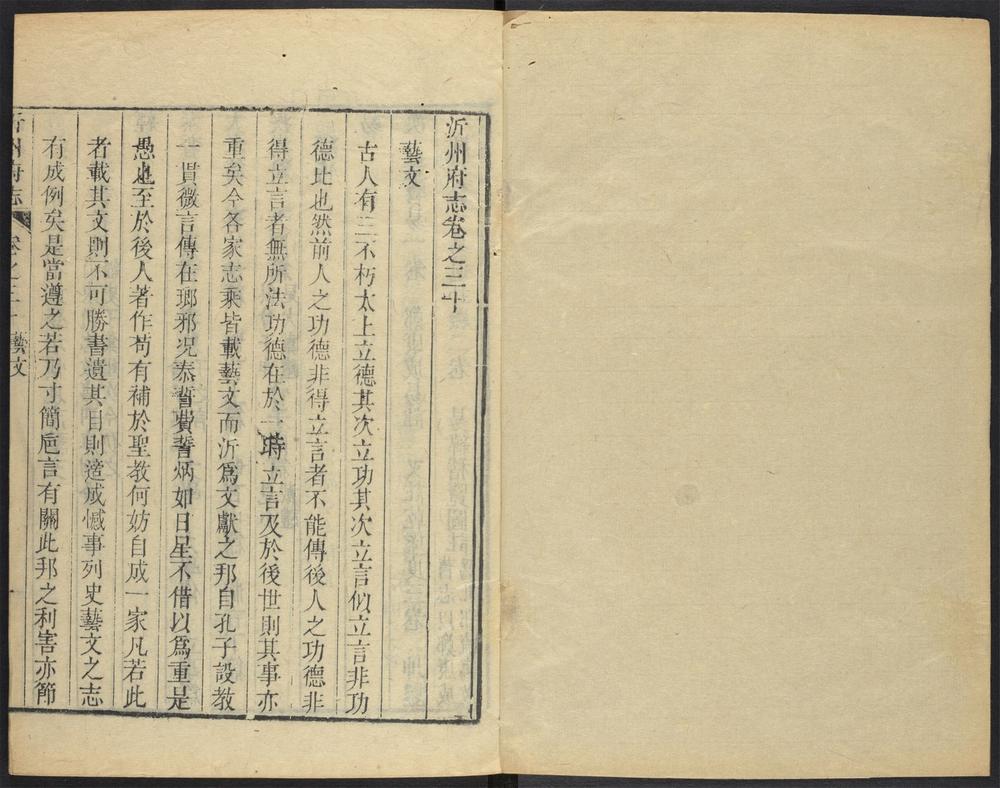 沂州府志卷之三十
藝文
古人有三不朽太上立德其次立功其次立言似立言非功
德比也然前人之功德非得立言者不能傳後人之功德非
得立言者無所法功德在於一時立言及於後世則其事亦
重矣今各家志乘皆載藝文而沂爲文獻之邦自孔子設教
一貫微言傳在瑯邪况泰誓費誓炳如日星不借以爲重是
愚也至於後人著作苟有補於聖教何妨自成一家凡若此
者載其文則不可勝書遺其目則遂成憾事列史藝文之志
有成例矣是當遵之若乃寸簡巵言有關此邦之利害亦節
沂州府志 卷之三十 藝文